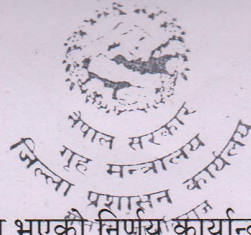 नेपाल सरकार
गृह मन्त्रालय
जिल्ला प्रशासन कार्यालय
भएको निर्णय कार्यान्